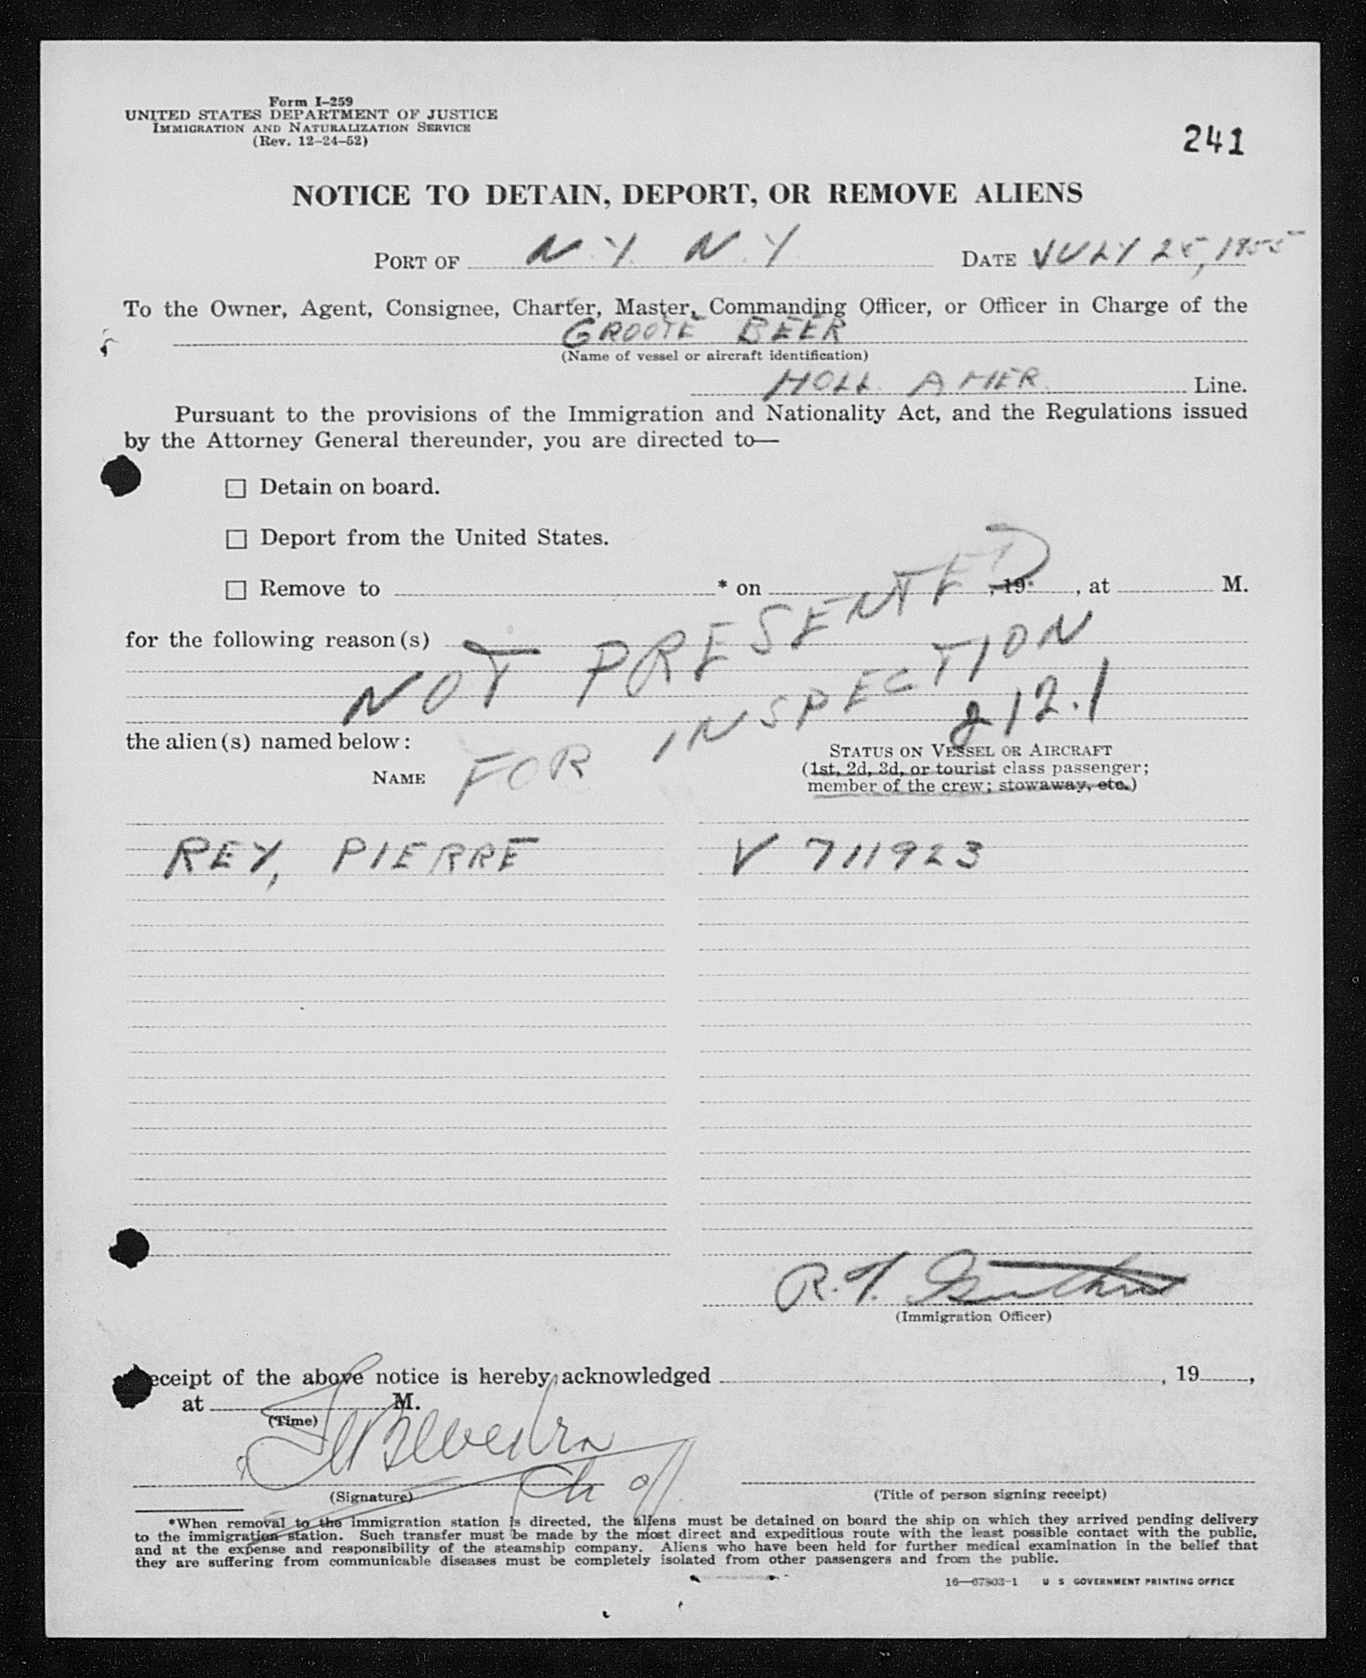 Form I-259
UNITED STATES DEPARTMENT OF JUSTICE
IMMIGRATION AND NATURALIZATION SERVICE
(Rev. 12-24-52)
241
NOTICE TO DETAIN, DEPORT, OR REMOVE ALIENS
PORT OF N.Y. N.Y. DATE JULY 25, 1955
To the Owner, Agent, Consignee, Charter, Master, Commanding Officer, or Officer in Charge of the
GROOTE BEER
(Name of vessel or aircraft identification)
HOLL. AMER. Line.
Pursuant to the provisions of the Immigration and Nationality Act, and the Regulations issued
by the Attorney General thereunder, you are directed to—
Detain on board.
Deport from the United States.
Remove to * on , 19 , at M.
for the following reason(s)
NOT PRESENTED
FOR INSPECTION
212.1
the alien(s) named below:
NAME
STATUS ON VESSEL OR AIRCRAFT
(1st, 2d, 3d, or tourist class passenger;
member of the crew; stowaway, etc.)
REY, PIERRE V 711923
R.
(Immigration Officer)
Receipt of the above notice is hereby acknowledged , 19 ,
at M.
(Time)
(Signature)
(Title of person signing receipt)
*When removal to the immigration station is directed, the aliens must be detained on board the ship on which they arrived pending delivery
to the immigration station. Such transfer must be made by the most direct and expeditious route with the least possible contact with the public,
and at the expense and responsibility of the steamship company. Aliens who have been held for further medical examination in the belief that
they are suffering from communicable diseases must be completely isolated from other passengers and from the public.
16—67903-1 U S GOVERNMENT PRINTING OFFICE